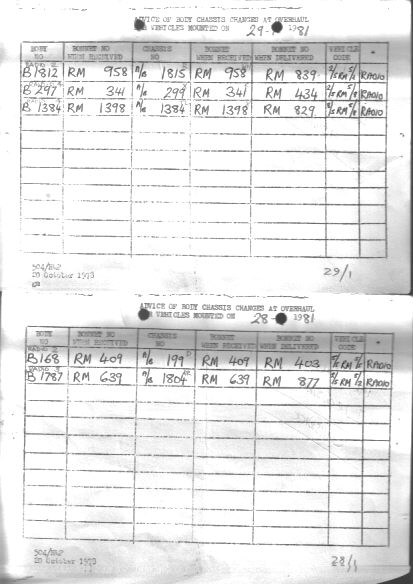 ADVICE OF BODY CHASSIS CHANGES AT OVERHAUL
VEHICLES MOUNTED ON 29- 1981
BODY NO BONNET NO WHEN RECEIVED CHASSIS NO BONNET WHEN RECEIVED BONNET NO WHEN DELIVERED VEHICLE CODE *
B1812 RM 958 A/B 1815 RM 958 RM 839 2/5 RM 5/4 RADIO
B297 RM 341 A/B 299 RM 341 RM 434 2/5 RM 5/8 RADIO
B1384 RM 1398 A/B 1384 RM 1398 RM 829 2/5 RM 5/8 RADIO
504/
20 October 1978
29/1
ADVICE OF BODY CHASSIS CHANGES AT OVERHAUL
VEHICLES MOUNTED ON 28- 1981
BODY NO BONNET NO WHEN RECEIVED CHASSIS NO BONNET WHEN RECEIVED BONNET NO WHEN DELIVERED VEHICLE CODE *
B168 RM 409 A/B 199 RM 409 RM 403 RM RADIO
B1787 RM 639 A/B 1804 RM 639 RM 877 RM RADIO
504/
20 October 1978
28/1